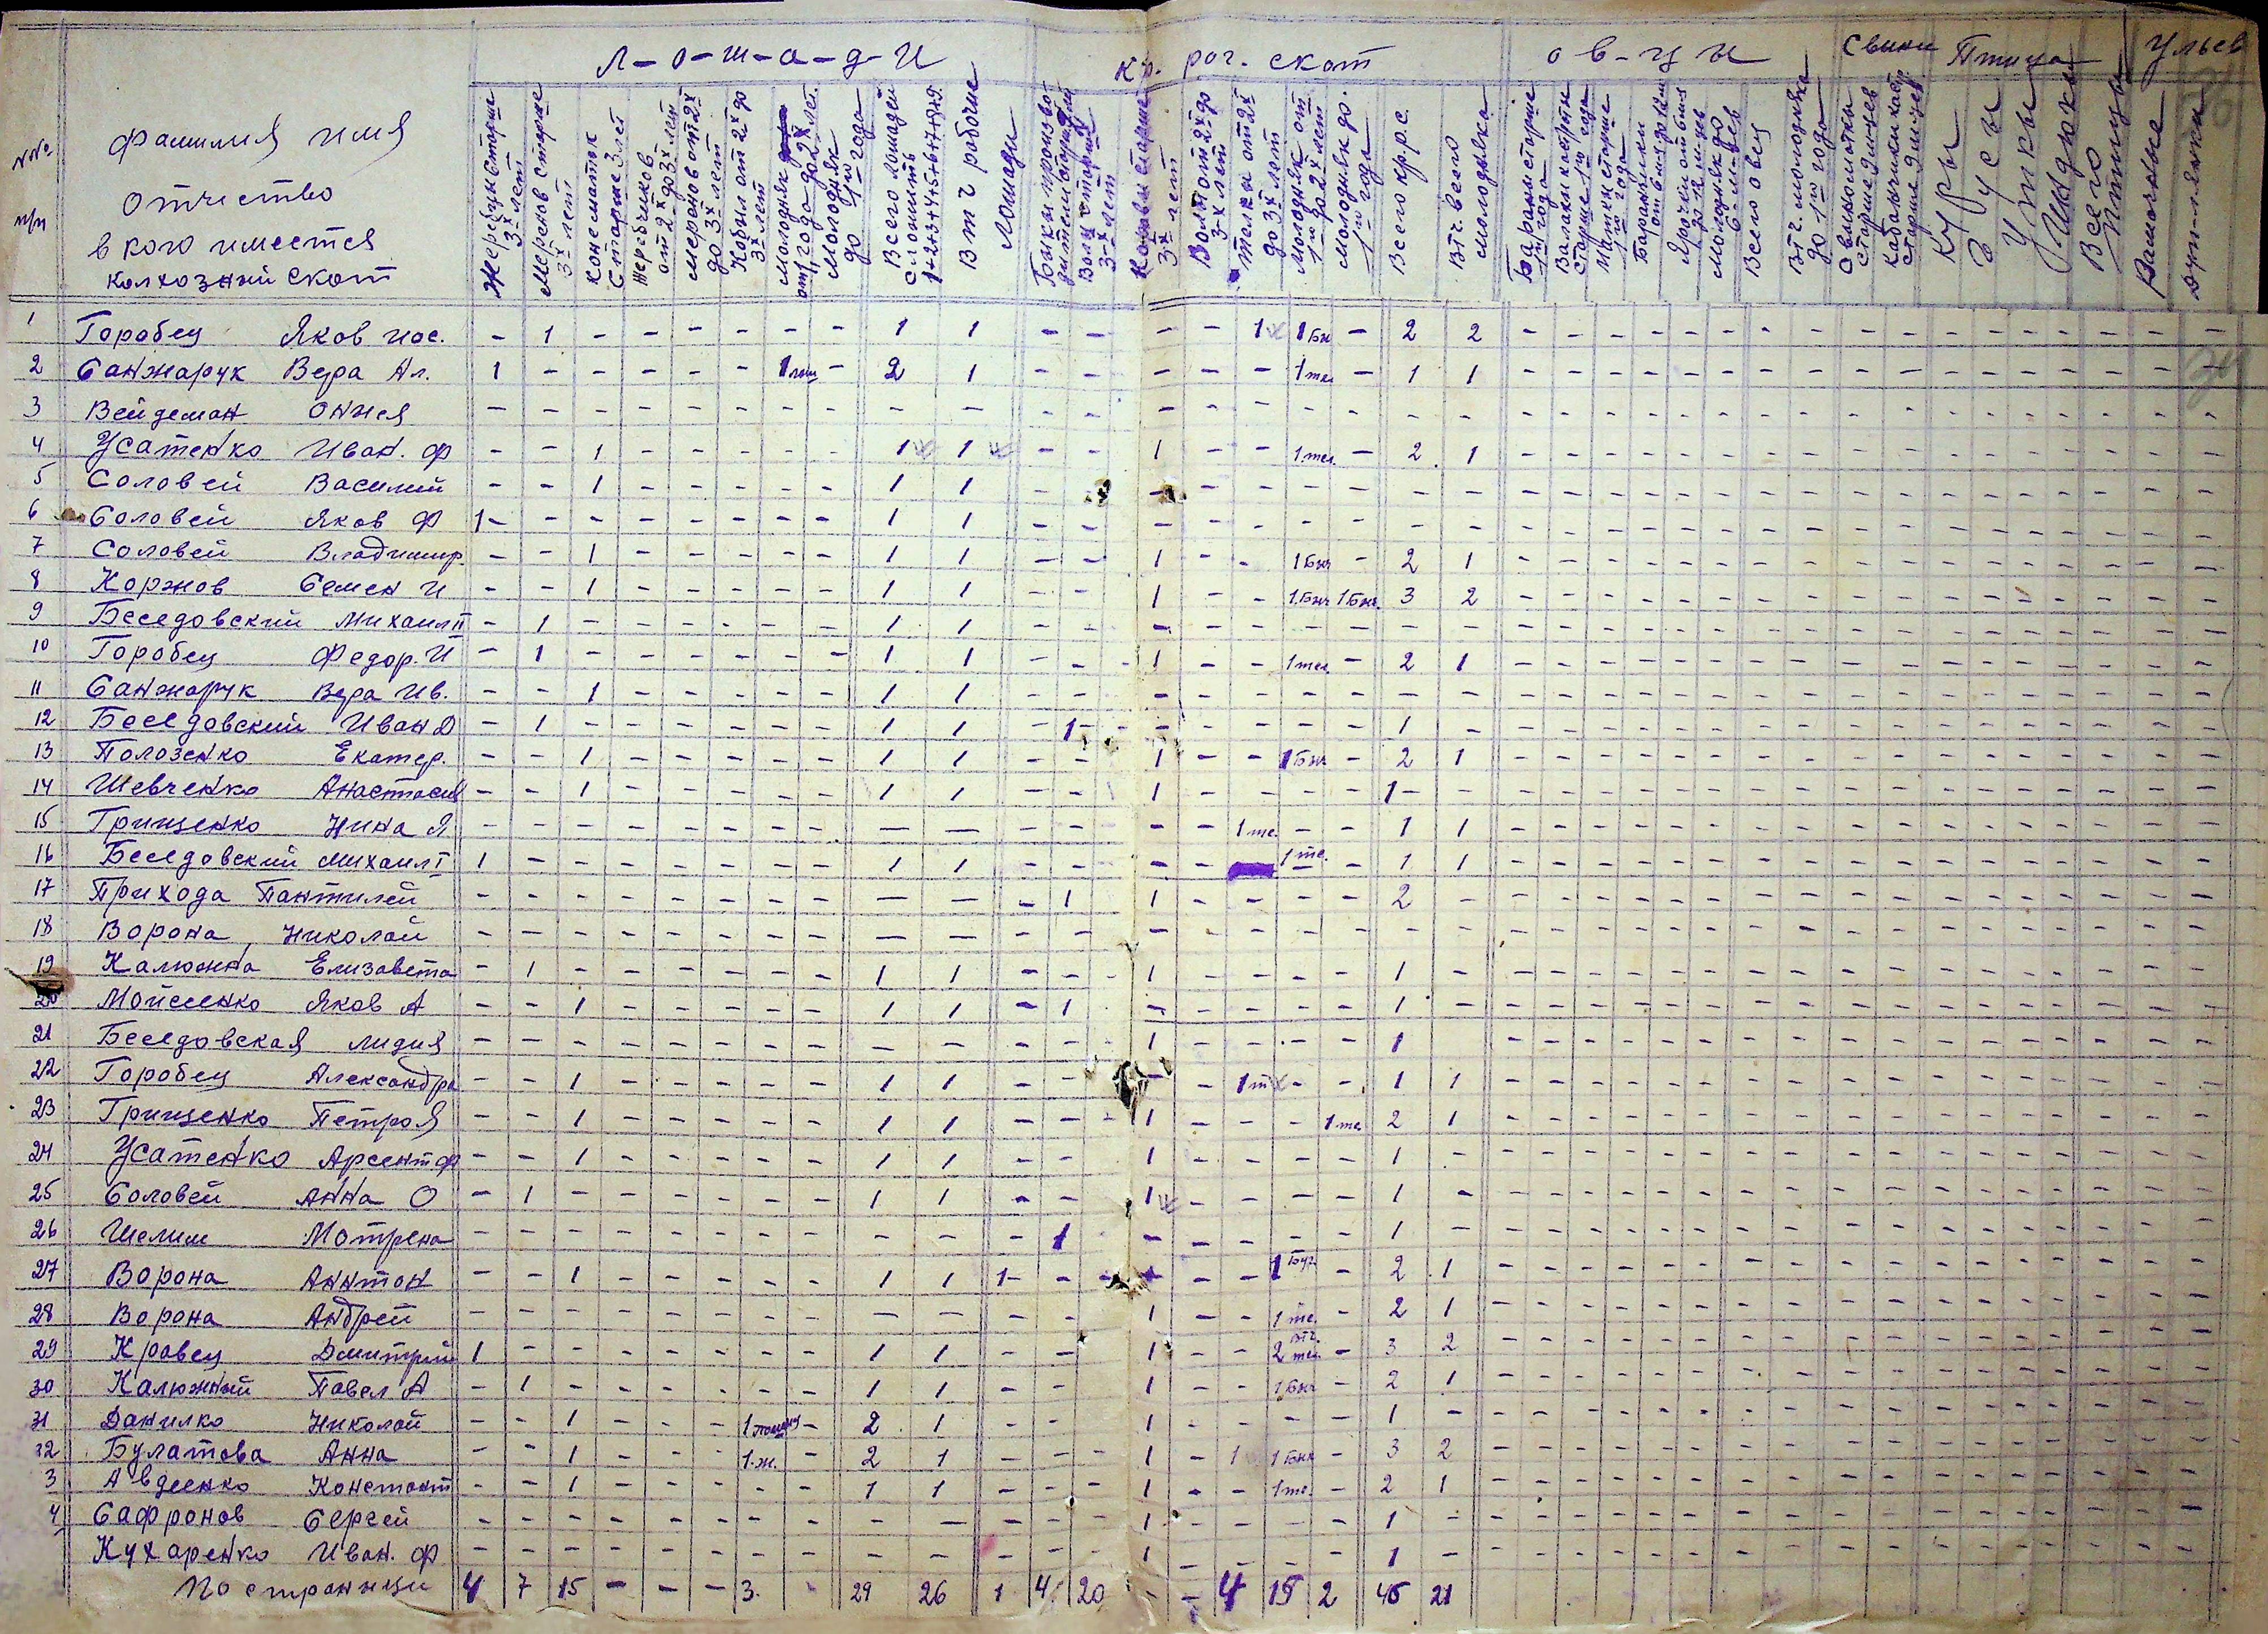 л-о-ш-а-д-и кр. рог. скот о в-ц ы свиньи Птица Ульев
№№ п/п
фамилия имя
отчество
в кого имеется
колхозный скот
Жеребцы старше 3х лет
Меренов старше 3х лет
Конематок старше 3 лет
Жеребчиков от 2х до 3х лет
Меренов от 2х до 3х лет
Кобыл от 2х до 3х лет
Молодняк от 1 года до 2х лет.
Молодняк до 1го года
Всего лошадей сложить 1+2+3+4+5+6+7+8+9.
В т ч рабочие лошади
Волы старше 3-х лет
Коровы старше 3х лет
Волы от 2х до 3-х лет
Телки от 2х до 3х лет
Молодняк от 1го до 2х лет
Молодняк до 1го года
Всего кр.р.с.
вт.ч. всего молодняка
Бараны старше 1го года
Валахи кастры старше 1го года
Матки старше 1го года
Молодняк до 6-м-цев
Всего овец
Вт.ч. молодняка до 1го года
Свиноматки старше 9 м-цев
Куры
Гусы
Утки
Индюки
Всего птицы
Рамочные
дуплянки
1 Горобец Яков иос. - 1 - - - - - - 1 1 - - - - 1 1 бы - 2 2 - - - - - - - - - - - - - - - - -
2 Санжарук Вера Ал. 1 - - - - - 1 лош - 2 1 - - - - - 1 тел - 1 1 - - - - - - - - - - - - - - - - -
3 Вейдеман Онжея - - - - - - - - - - - - - - - - - - - - - - - - - - - - - - - - - - - -
4 Усатенко Иван. Ф - - 1 - - - - - 1 1 - - 1 - - 1 тел. - 2 1 - - - - - - - - - - - - - - - - -
5 Соловей Василий - - 1 - - - - - 1 1 - - - - - - - - - - - - - - - - - - - - - - - - - -
6 Соловей Яков Ф 1 - - - - - - - 1 1 - - - - - - - - - - - - - - - - - - - - - - - - - -
7 Соловей Владимир - - 1 - - - - - 1 1 - - 1 - - 1 быч - 2 1 - - - - - - - - - - - - - - - - -
8 Коржов Семен И - - 1 - - - - - 1 1 - - 1 - - 1 быч 1 быч. 3 2 - - - - - - - - - - - - - - - - -
9 Беседовский Михаил II - 1 - - - - - - 1 1 - - - - - - - - - - - - - - - - - - - - - - - - - -
10 Горобец Федор. И - 1 - - - - - - 1 1 - - 1 - - 1 тел. - 2 1 - - - - - - - - - - - - - - - - -
11 Санжарук Вера Ив. - - 1 - - - - - 1 1 - - - - - - - - - - - - - - - - - - - - - - - - - -
12 Беседовский Иван Д - 1 - - - - - - 1 1 - 1 - - - - - 1 - - - - - - - - - - - - - - - - - -
13 Полозенко Екатер. - - 1 - - - - - 1 1 - - 1 - - 1 быч - 2 1 - - - - - - - - - - - - - - - - -
14 Шевченко Анастасия - - 1 - - - - - 1 1 - - 1 - - - - 1 - - - - - - - - - - - - - - - - - -
15 Грищенко Нина Я - - - - - - - - - - - - - - 1 те. - - 1 1 - - - - - - - - - - - - - - - - -
16 Беседовский Михаил I 1 - - - - - - - 1 1 - - - - 1 те. - 1 1 - - - - - - - - - - - - - - - - -
17 Прихода Пантилей - - - - - - - - - - - 1 1 - - - - 2 - - - - - - - - - - - - - - - - - -
18 Ворона Николай - - - - - - - - - - - - - - - - - - - - - - - - - - - - - - - - - - - -
19 Калюжна Елизавета - 1 - - - - - - 1 1 - - 1 - - - - 1 - - - - - - - - - - - - - - - - - -
20 Мойсеенко Яков А - - 1 - - - - - 1 1 - 1 - - - - - 1 - - - - - - - - - - - - - - - - - -
21 Беседовская Лидия - - - - - - - - - - - - 1 - - - - 1 - - - - - - - - - - - - - - - - -
22 Горобец Александра - - 1 - - - - - 1 1 - - - - 1 т - - 1 1 - - - - - - - - - - - - - - - - -
23 Грищенко Петро Я - - 1 - - - - - 1 1 - - 1 - - - 1 те 2 1 - - - - - - - - - - - - - - - - -
24 Усатенко Арсент Ф - - 1 - - - - - 1 1 - - 1 - - - - 1 - - - - - - - - - - - - - - - - - -
25 Соловей Анна О - 1 - - - - - - 1 1 - - 1 - - - - 1 - - - - - - - - - - - - - - - - - -
26 Шелим Мотрена - - - - - - - - - - - 1 - - - - - 1 - - - - - - - - - - - - - - - - - -
27 Ворона Антон - - 1 - - - - - 1 1 1 - - - - 1 - 2 1 - - - - - - - - - - - - - - - - -
28 Ворона Андрей - - - - - - - - - - - - 1 - - 1 те. - 2 1 - - - - - - - - - - - - - - - - -
29 Кравец Дмитрий 1 - - - - - - - 1 1 - - 1 - - 2 тел. - 3 2 - - - - - - - - - - - - - - - - -
30 Калюжный Павел А - 1 - - - - - - 1 1 - - 1 - - 1 быч - 2 1 - - - - - - - - - - - - - - - - -
31 Данилко Николай - - 1 - - - 1 - 2 1 - - 1 - - - - 1 - - - - - - - - - - - - - - - - - -
32 Булатова Анна - - 1 - - - 1.ж. - 2 1 - - 1 - 1 1 быч - 3 2 - - - - - - - - - - - - - - - - -
3 Авдеенко Констант - - 1 - - - - - 1 1 - - 1 - - 1 те. - 2 1 - - - - - - - - - - - - - - - - -
4 Сафронов Сергей - - - - - - - - - - - - 1 - - - - 1 - - - - - - - - - - - - - - - - - -
Кухаренко Иван. Ф - - - - - - - - - - - - 1 - - - - 1 - - - - - - - - - - - - - - - - - -
По странице 4 7 15 - - - 3. - 29 26 1 4 20 - - 4 15 2 45 21